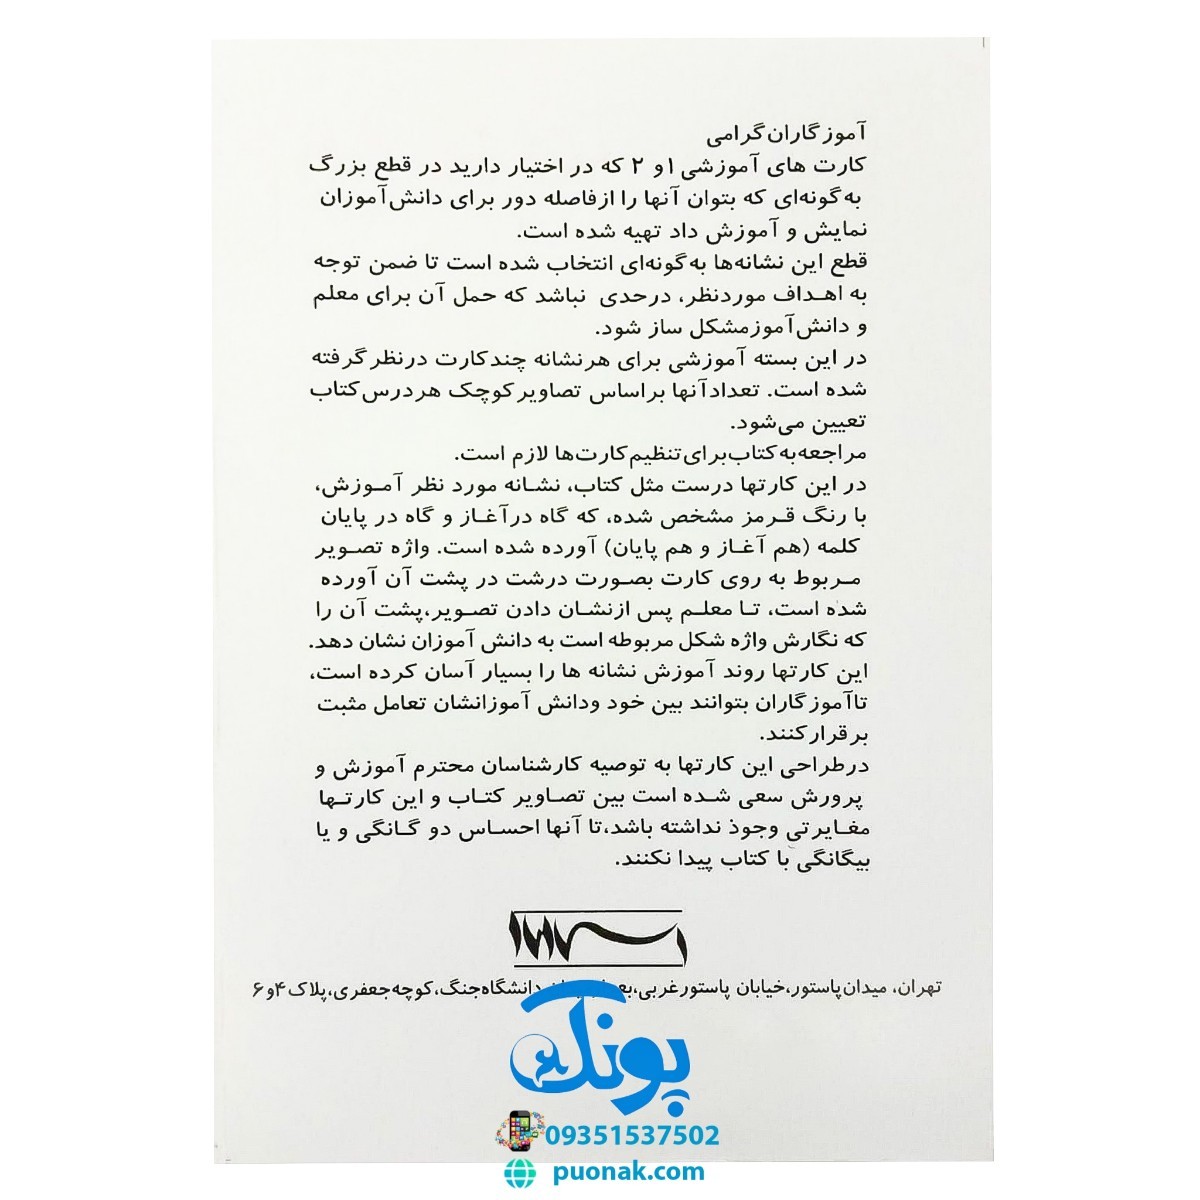 آموزگاران گرامی
کارت های آموزشی ۱و ۲ که در اختیار دارید در قطع بزرگ
به گونه‌ای که بتوان آنها را ازفاصله دور برای دانش‌آموزان
نمایش و آموزش داد تهیه شده است.
قطع این نشانه‌ها به گونه‌ای انتخاب شده است تا ضمن توجه
به اهـداف موردنظر، درحدی نباشد که حمل آن برای معلم
و دانش‌آموزمشکل ساز شود.
در این بسته آموزشی برای هرنشانه چندکارت درنظرگرفته
شده است. تعدادآنها براساس تصاویرکوچک هردرس‌کتاب
تعیین می‌شود.
مراجعه‌به‌کتاب‌برای‌تنظیم‌کارت‌ها لازم است.
در این کارتها درست مثل کتاب، نشـانه مورد نظر آمـوزش،
با رنگ قـرمز مشخص شده، که گاه درآغـاز و گاه در پایان
کلمه (هم آغـاز و هم پایان) آورده شده است. واژه تصویر
مـربوط به روی کارت بصـورت درشت در پشت آن آورده
شده است، تـا معلـم پس ازنشان دادن تصویر،پشت آن را
که نگارش واژه شکل مربوطه است به دانش آموزان نشان دهد.
این کارتها روند آموزش نشانه ها را بسیار آسان کرده است،
تاآموزگاران بتوانند بین خود ودانش آموزانشان تعامل مثبت
برقرارکنند.
درطراحی این کارتها به توصیه کارشناسان محترم آموزش و
پرورش سعی شده است بین تصاویر کتاب و این کارتـها
مغـایرتی وجوذ نداشته باشد،تا آنها احساس دو گانگی و یا
بیگانگی با کتاب پیدا نکنند.
تهران، میدان‌پاستور،خیابان پاستورغربی، دانشگاه‌جنگ،کوچه‌جعفری،پلاک ۴و۶
پونک
09351537502
puonak.com